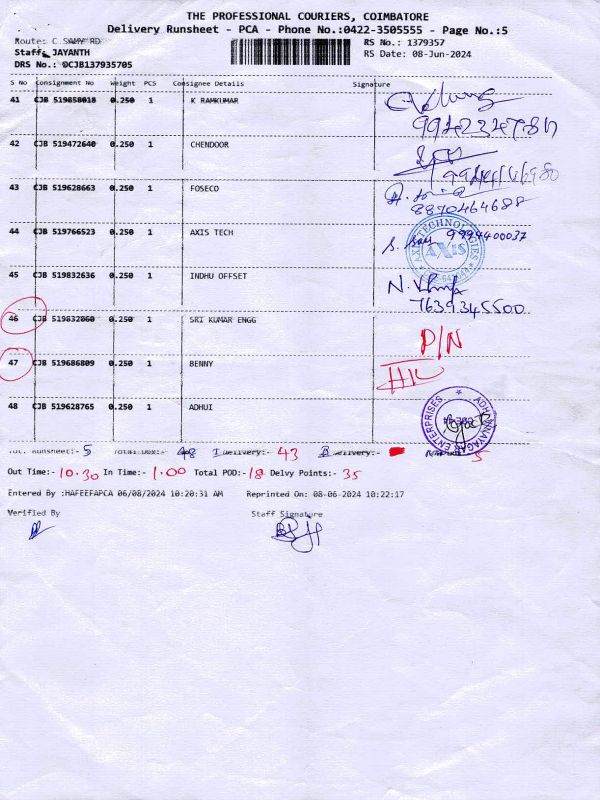 THE PROFESSIONAL COURIERS, COIMBATORE
Delivery Runsheet - PCA - Phone No.:0422-3505555 - Page No.:5
Route: C SAMY RD
RS No.: 1379357
Staff: JAYANTH
RS Date: 08-Jun-2024
DRS No.: DCJB137935705
S No Consignment No Weight PCS Consignee Details Signature
41 CJB 519858018 0.250 1 K RAMKUMAR
42 CJB 519472640 0.250 1 CHENDOOR
43 CJB 519628663 0.250 1 FOSECO
8890464688
44 CJB 519766523 0.250 1 AXIS TECH 9994400037
AXIS
45 CJB 519832636 0.250 1 INDHU OFFSET
7639345500
46 CJB 519832860 0.250 1 SRI KUMAR ENGG P/N
47 CJB 519686809 0.250 1 BENNY
48 CJB 519628765 0.250 1 ADHUI
ENTERPRISES
Tot. Runsheet:- 5 Total Dox:- 48 I Delivery:- 43 B Delivery:- 5
Out Time:- 10.30 In Time:- 1.00 Total POD:- 18 Delvy Points:- 35
Entered By :HAFEEFAPCA 06/08/2024 10:20:31 AM Reprinted On: 08-06-2024 10:22:17
Verified By Staff Signature